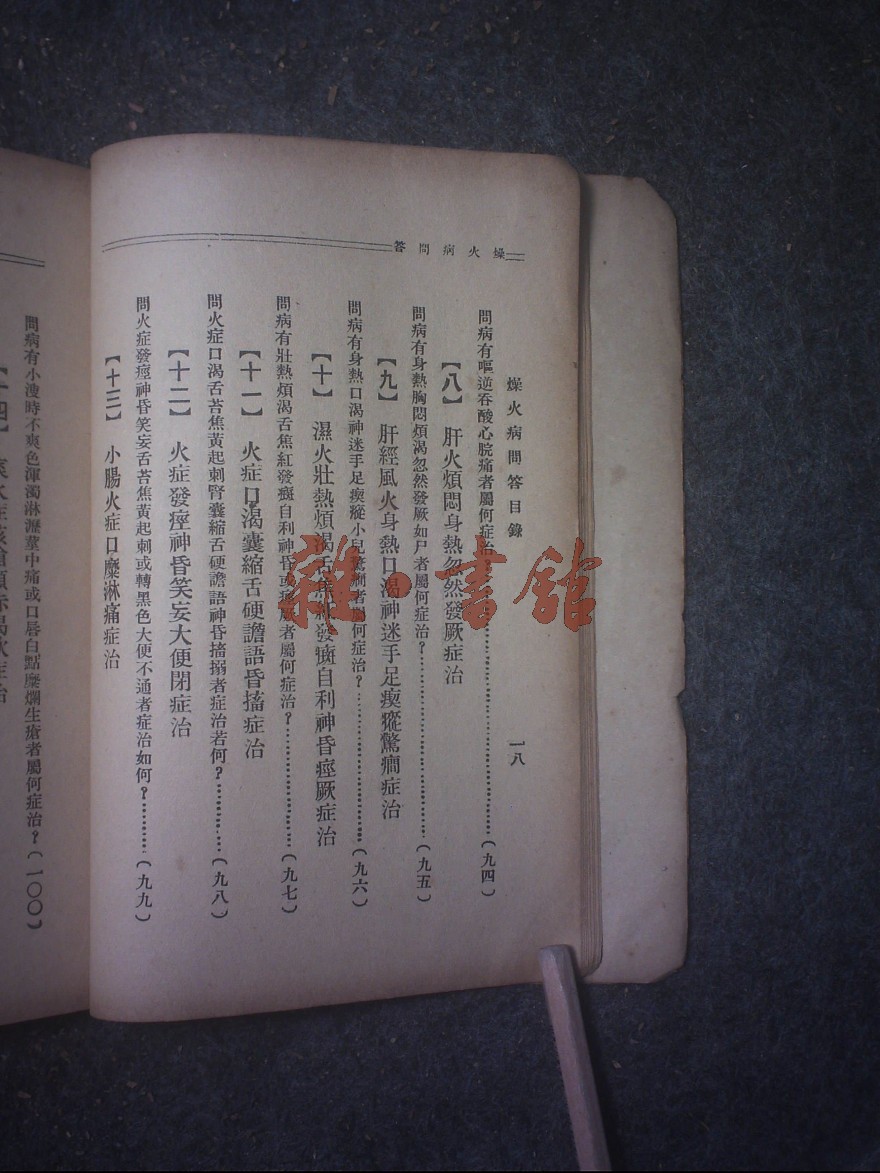 燥火病問答
燥火病問答目錄
一八
問病有嘔逆吞酸心脘痛者屬何症治?(九四)
【八】 肝火煩悶身熱忽然發厥症治
問病有身熱胸悶煩渴忽然發厥如尸者屬何症治?(九五)
【九】 肝經風火身熱口渴神迷手足瘈瘲驚癎症治
問病有身熱口渴神迷手足瘈瘲小兒驚癎者屬何症治?(九六)
【十】 濕火壯熱煩渴舌焦紅發癍自利神昏痙厥症治
問病有壯熱煩渴舌焦紅發癍自利神昏或痙厥者屬何症治?(九七)
【十一】 火症口渴囊縮舌硬譫語昏搐症治
問火症口渴舌苔焦黃起刺腎囊縮舌硬譫語神昏搐搦者症治若何?(九八)
【十二】 火症發痙神昏笑妄大便閉症治
問火症發痙神昏笑妄舌苔焦黃起刺或轉黑色大便不通者症治如何?(九九)
【十三】 小腸火症口糜淋痛症治
問病有小溲時不爽色渾濁淋瀝莖中痛或口唇白點糜爛生瘡者屬何症治?(一〇〇)
雜·書館